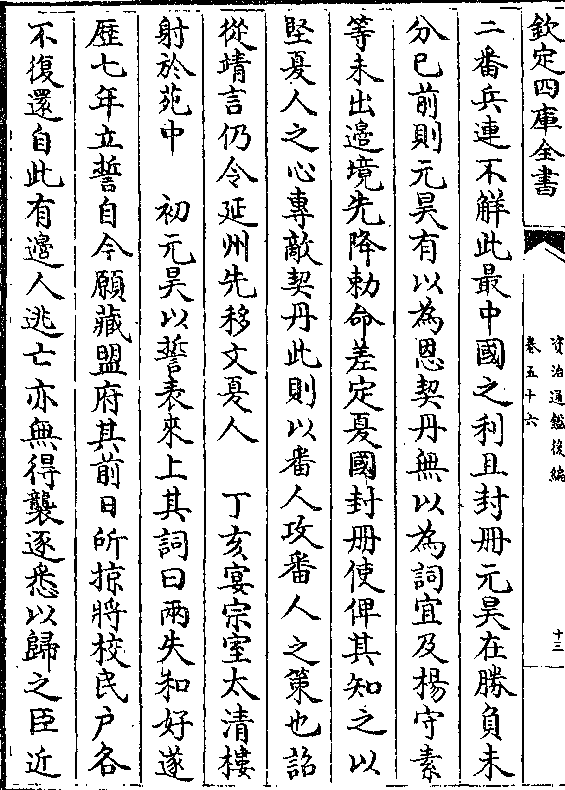 欽定四庫全書
資治通鑑後編
卷五十六
十三
二番兵連不解此最中國之利且封冊元昊在勝負未
分已前則元昊有以為恩契丹無以為詞宜及楊守素
等未出邉境先降勅命差定夏國封冊使俾其知之以
堅夏人之心專敵契丹此則以番人攻番人之策也詔
從靖言仍令延州先移文夏人　丁亥宴宗室太清樓
射於苑中　初元昊以誓表來上其詞曰兩失和好遂
歴七年立誓自今願藏盟府其前日所掠將校民户各
不復還自此有邉人逃亡亦無得襲逐悉以歸之臣近